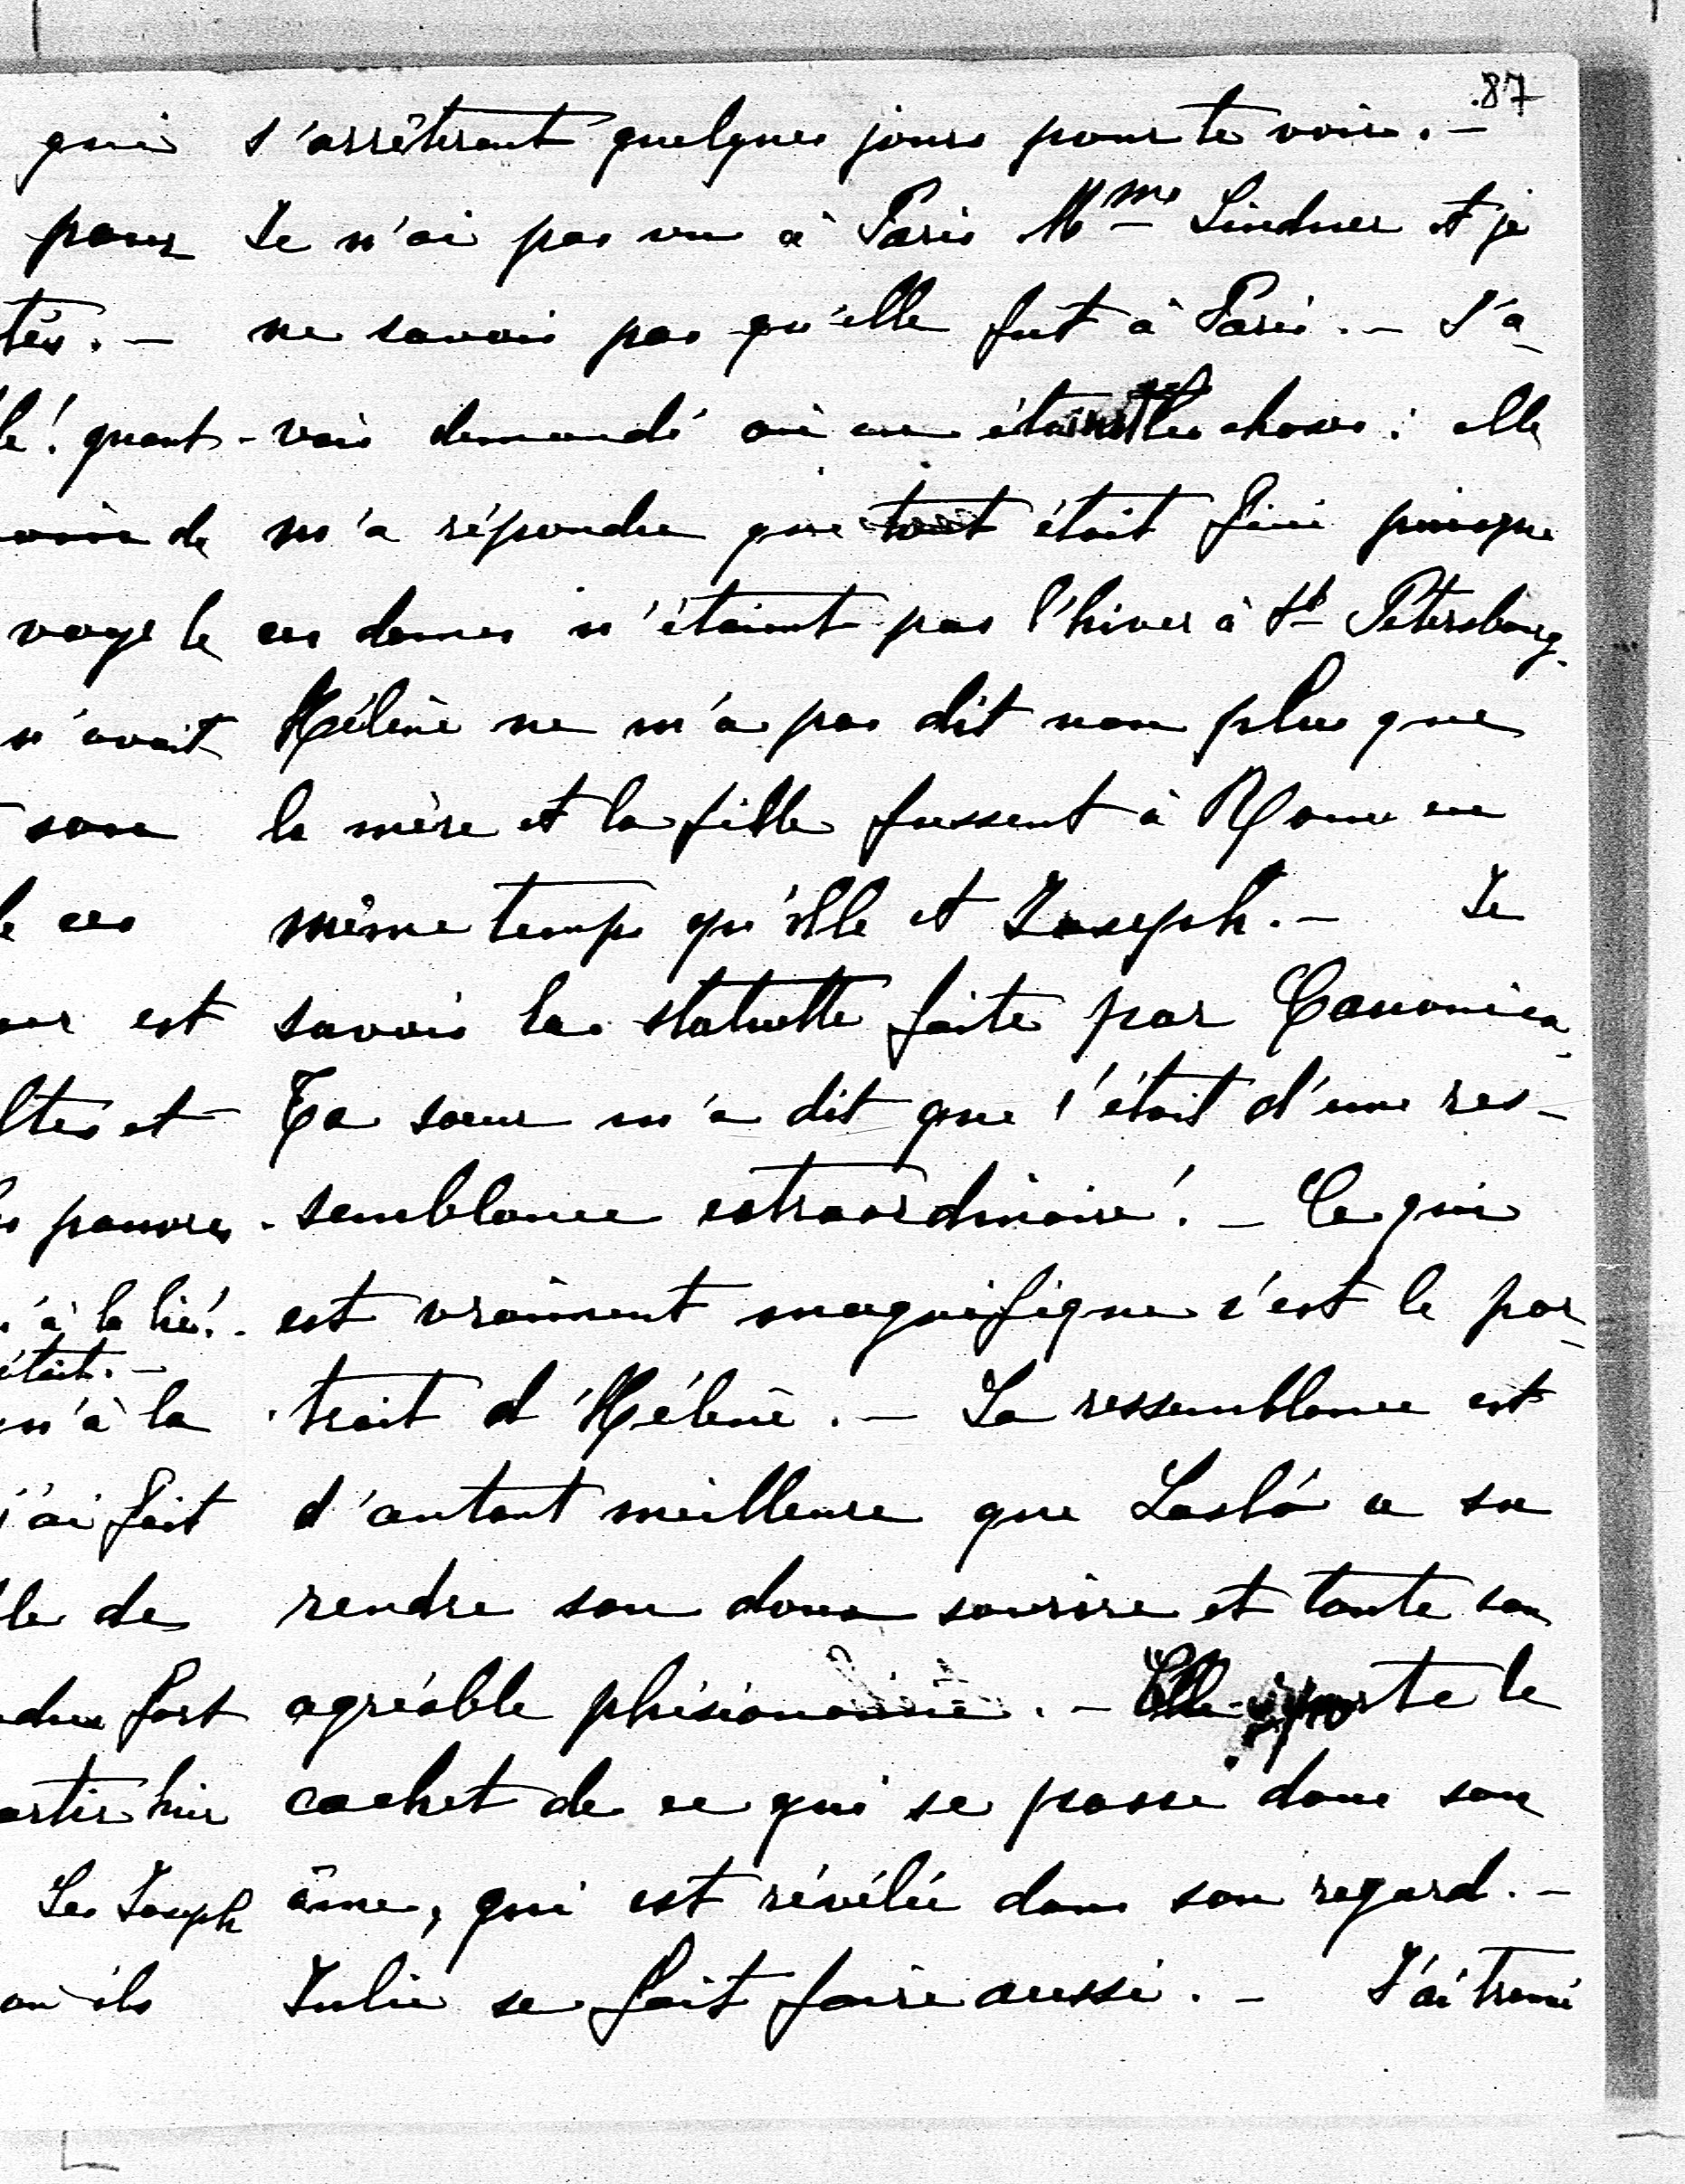 87
qui
pour
tés. —
lé! quant
de
voys le
n'avait
son
le ces
est
ltes et
pauvres
'à la lié!
était. —
n'à la
j'ai fait
le de
fort
artir hier
Les Joseph
ou ils
s'arrêteront quelques jours pour te voir. —
Je n'ai pas vu à Paris Mme Lindner et je
ne savais pas qu'elle fut à Paris. — J'a-
vais demandé où en étaient les choses: elle
m'a répondu que tout était fini puisque
ces dames n'étaient pas l'hiver à St Pétersbourg.
Hélène ne m'a pas dit non plus que
la mère et la fille fussent à Rome en
même temps qu'elle et Joseph. — Je
savais la statuette faite par Canonica.
Ta sœur m'a dit que c'était d'une res-
semblance extraordinaire! — Ce qui
est vraiment magnifique c'est le por-
trait d'Hélène. — La ressemblance est
d'autant meilleure que Lasló a su
rendre son doux sourire et toute son
agréable phisionomie. — Elle porte le
cachet de ce qui se passe dans son
âme, qui est révélée dans son regard. —
Julie se fait faire aussi. — J'ai trouvé